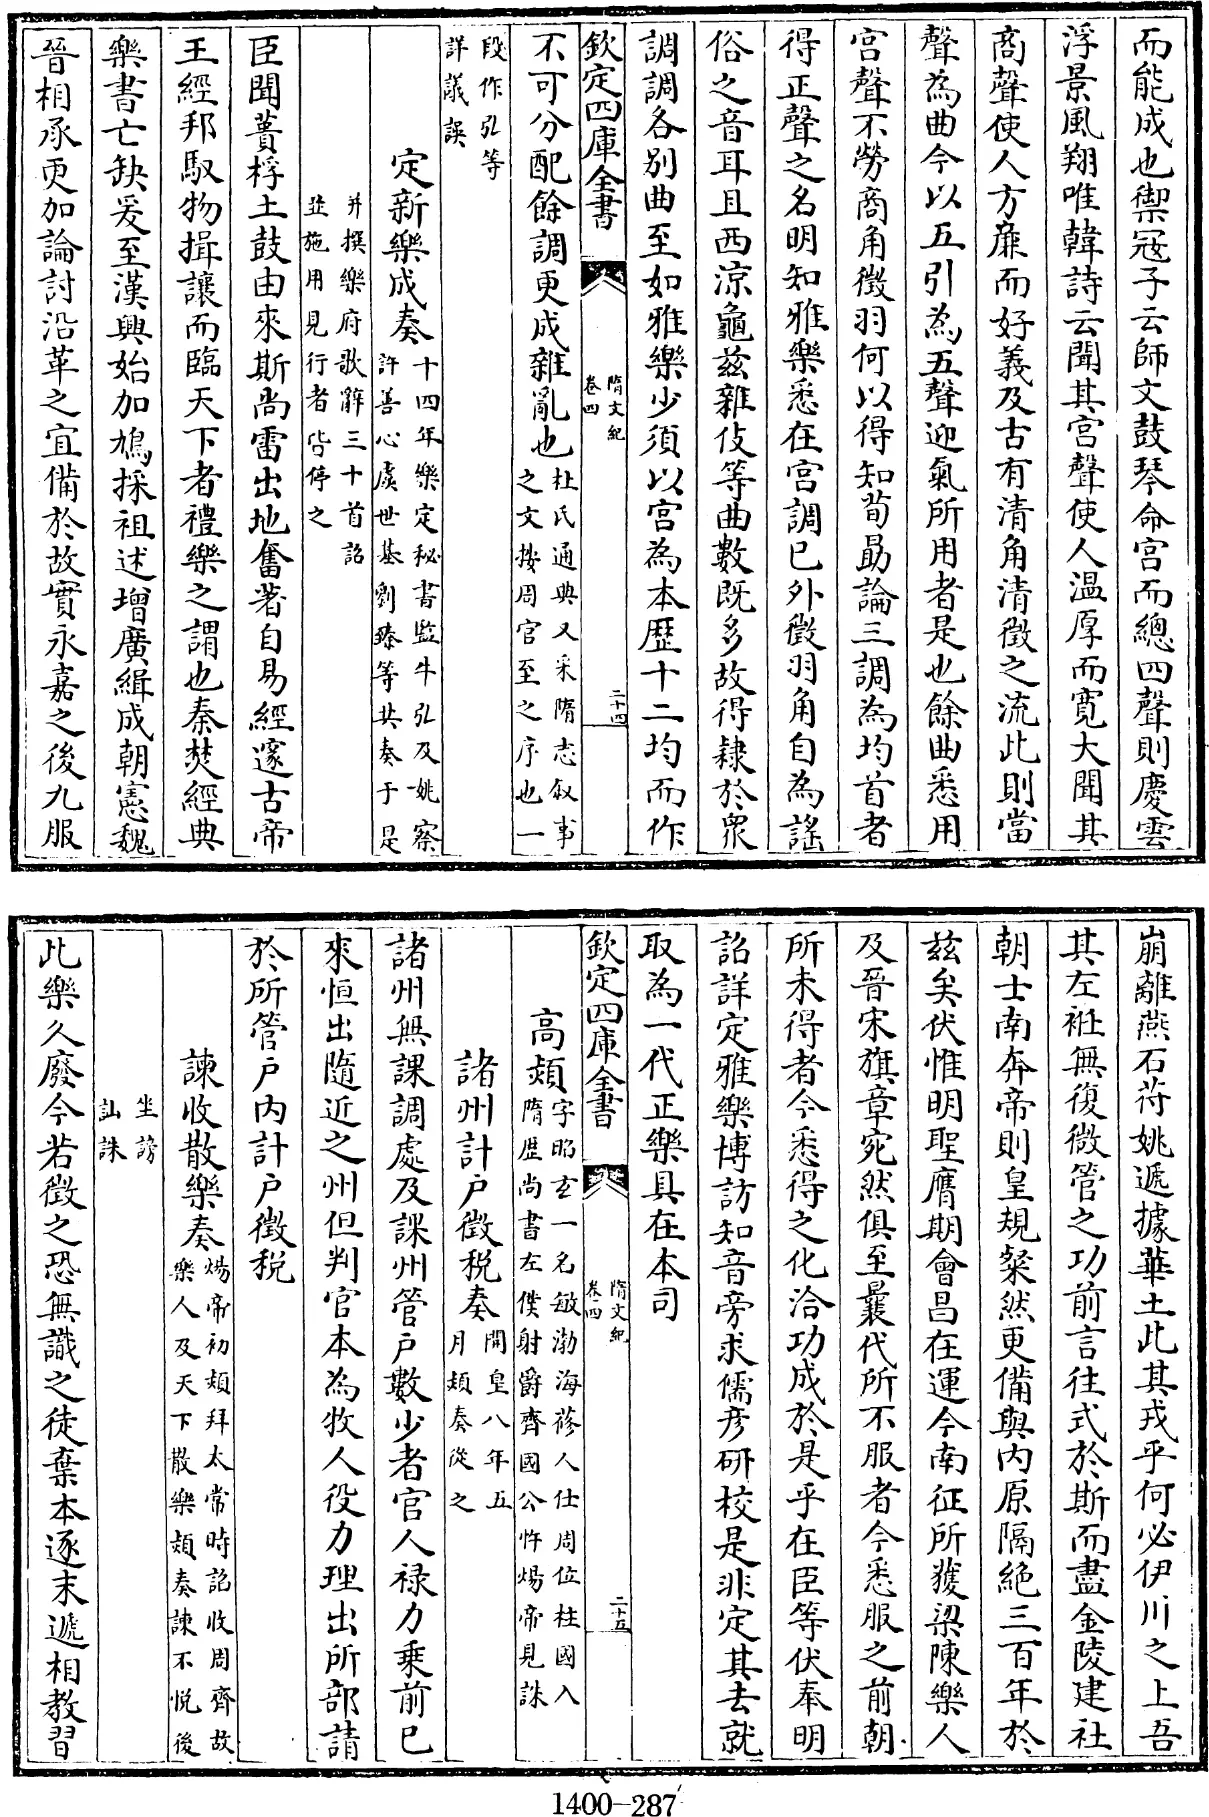 而能成也禦冦子云師文鼓琴命宫而總四聲則慶雲
浮景風翔唯韓詩云聞其宫聲使人温厚而寛大聞其
商聲使人方亷而好義及古有清角清徵之流此則當
聲為曲今以五引為五聲迎氣所用者是也餘曲悉用
宫聲不勞商角徵羽何以得知荀勗論三調為均首者
得正聲之名明知雅樂悉在宫調已外徵羽角自為謡
俗之音耳且西涼龜兹雜伎等曲數既多故得隸於衆
調調各别曲至如雅樂少須以宫為本歴十二均而作
欽定四庫全書
隋文紀
卷四
二十四
不可分配餘調更成雜亂也
杜氏通典又采隋志叙事
之文按周官至之序也一
段作弘等
詳議誤
定新樂成奏
十四年樂定秘書監牛弘及姚察
許善心虞世基劉臻等共奏于是
并撰樂府歌辭三十首詔
並施用見行者皆停之
臣聞蕢桴土鼓由來斯尚雷出地奮著自易經邃古帝
王經邦馭物揖讓而臨天下者禮樂之謂也秦焚經典
樂書亡缺爰至漢興始加鳩採祖述增廣緝成朝憲魏
晉相承更加論討沿革之宜備於故實永嘉之後九服
崩離燕石苻姚遞據華土此其戎乎何必伊川之上吾
其左袵無復微管之功前言往式於斯而盡金陵建社
朝士南奔帝則皇規粲然更備與内原隔絶三百年於
兹矣伏惟明聖膺期會昌在運今南征所獲梁陳樂人
及晉宋旗章宛然俱至曩代所不服者今悉服之前朝
所未得者今悉得之化洽功成於是乎在臣等伏奉明
詔詳定雅樂博訪知音旁求儒彦研校是非定其去就
取為一代正樂具在本司
欽定四庫全書
隋文紀
卷四
二十五
高熲
字昭玄一名敏渤海蓨人仕周位柱國入
隋歴尚書左僕射爵齊國公忤煬帝見誅
諸州計户徵税奏
開皇八年五
月熲奏從之
諸州無課調處及課州管户數少者官人禄力乗前已
來恒出隨近之州但判官本為牧人役力理出所部請
於所管户内計户徵税
諫收散樂奏
煬帝初熲拜太常時詔收周齊故
樂人及天下散樂熲奏諫不悦後
坐謗
訕誅
此樂久廢今若徵之恐無識之徒棄本逐末遞相教習
1400-287